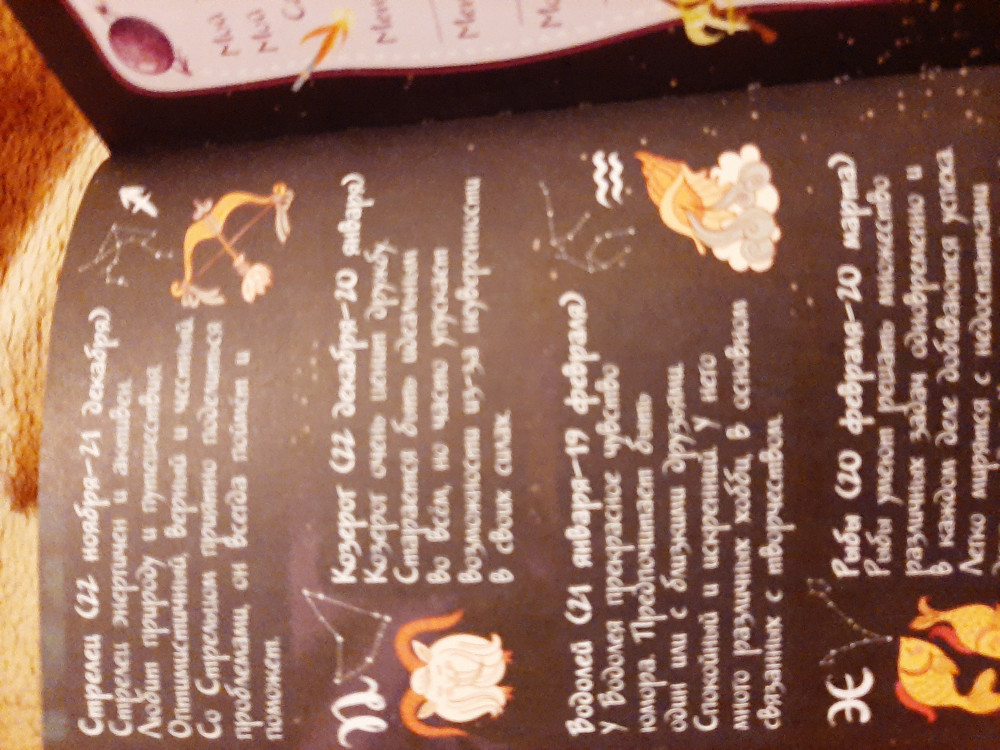 Мой
Мой
Стрелец (22 ноября-21 декабря)
Стрелец энергичен и активен.
Любит природу и путешествия.
Оптимистичный, верный и честный.
Со Стрельцом приятно поделиться
проблемами, он всегда поймёт и
поможет.
Козерог (22 декабря-20 января)
Козерог очень ценит дружбу.
Старается быть идеальным
во всём, но часто упускает
возможности из-за неуверенности
в своих силах.
Водолей (21 января-19 февраля)
У Водолея прекрасное чувство
юмора. Предпочитает быть
один или с близкими друзьями.
Спокойный и искренний, у него
много различных хобби, в основном
связанных с творчеством.
Рыбы (20 февраля-20 марта)
Рыбы умеют решать множество
различных задач одновременно и
в каждом деле добиваются успеха.
Легко мирятся с недостатками